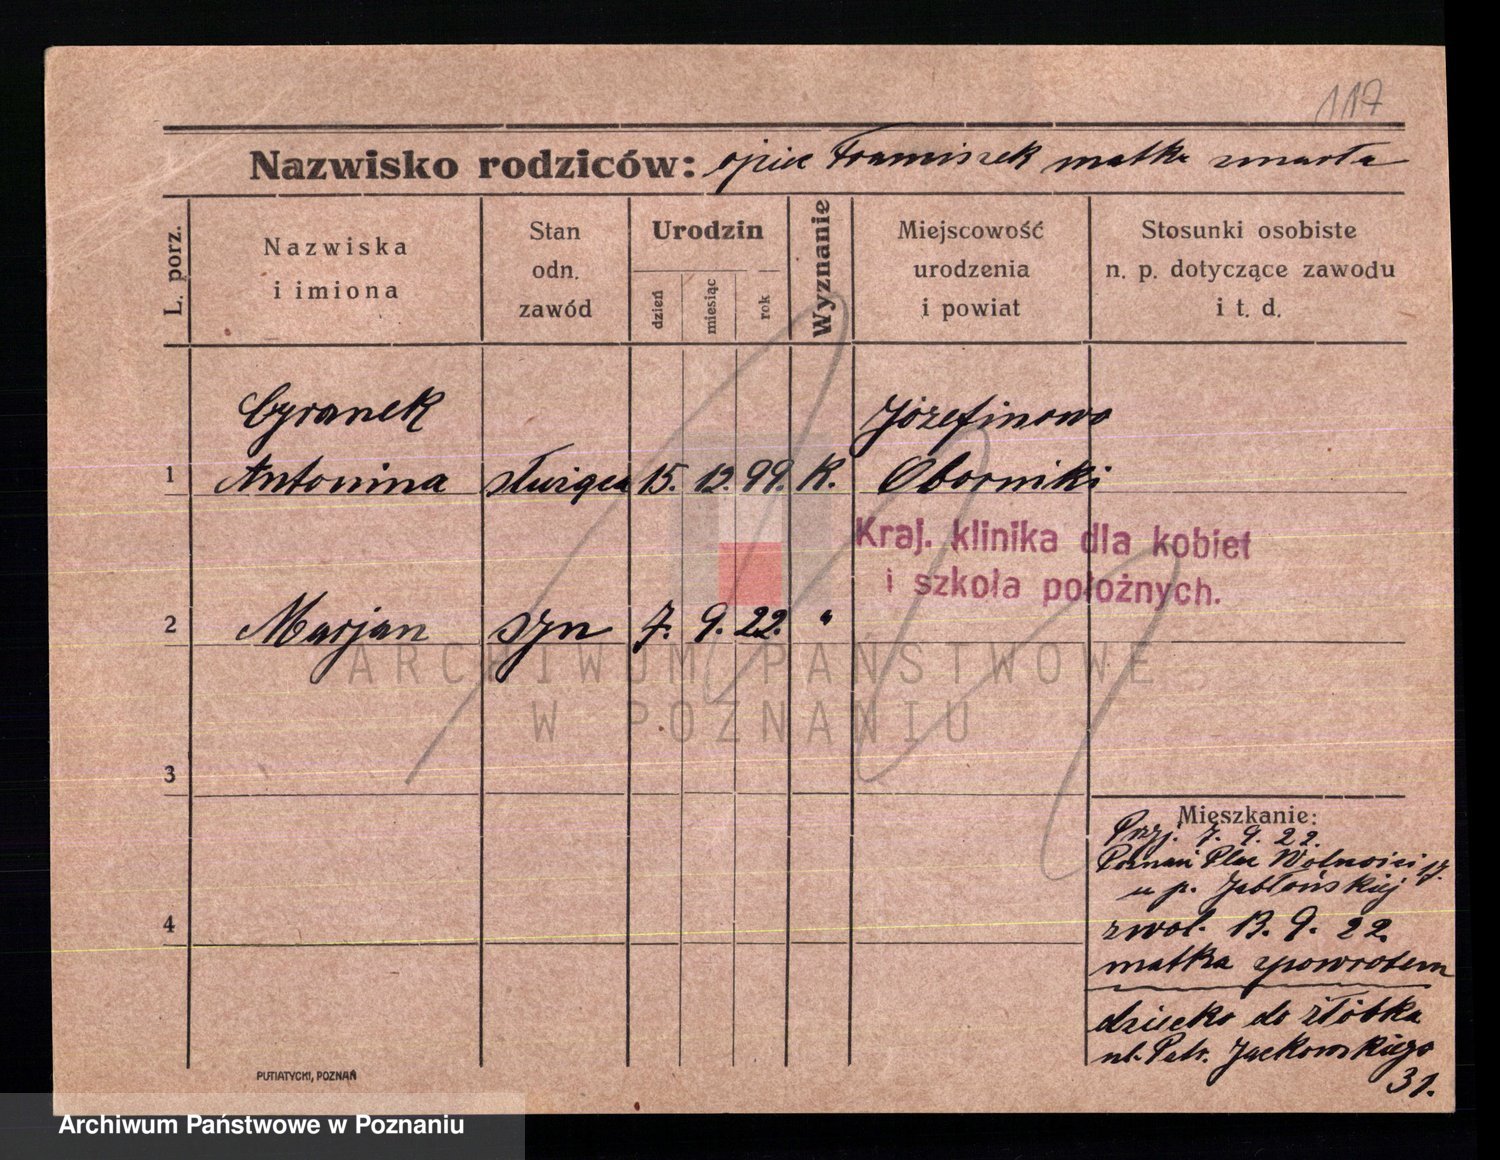 117
Nazwisko rodziców: ojciec Franciszek matka zmarła
L. porz.
Nazwiska i imiona
Stan odn. zawód
Urodzin
dzień
miesiąc
rok
Wyznanie
Miejscowość urodzenia i powiat
Stosunki osobiste n. p. dotyczące zawodu i t. d.
Cyranek Józefinowo
1 Antonina służąca 15. 12. 99. K. Oborniki
Kraj. klinika dla kobiet
i szkoła położnych.
2 Marjan syn 7. 9. 22. "
ARCHIWUM PAŃSTWOWE
W POZNANIU
3
Mieszkanie:
Przj. 7. 9. 22.
Poznań Plac Wolności 17.
u p. Jabłońskiej
4
zwol. 13. 9. 22.
matka zpowrotem
dziecko do żłóbka
ul. Patr. Jackowskiego
31.
PUTIATYCKI, POZNAŃ
Archiwum Państwowe w Poznaniu